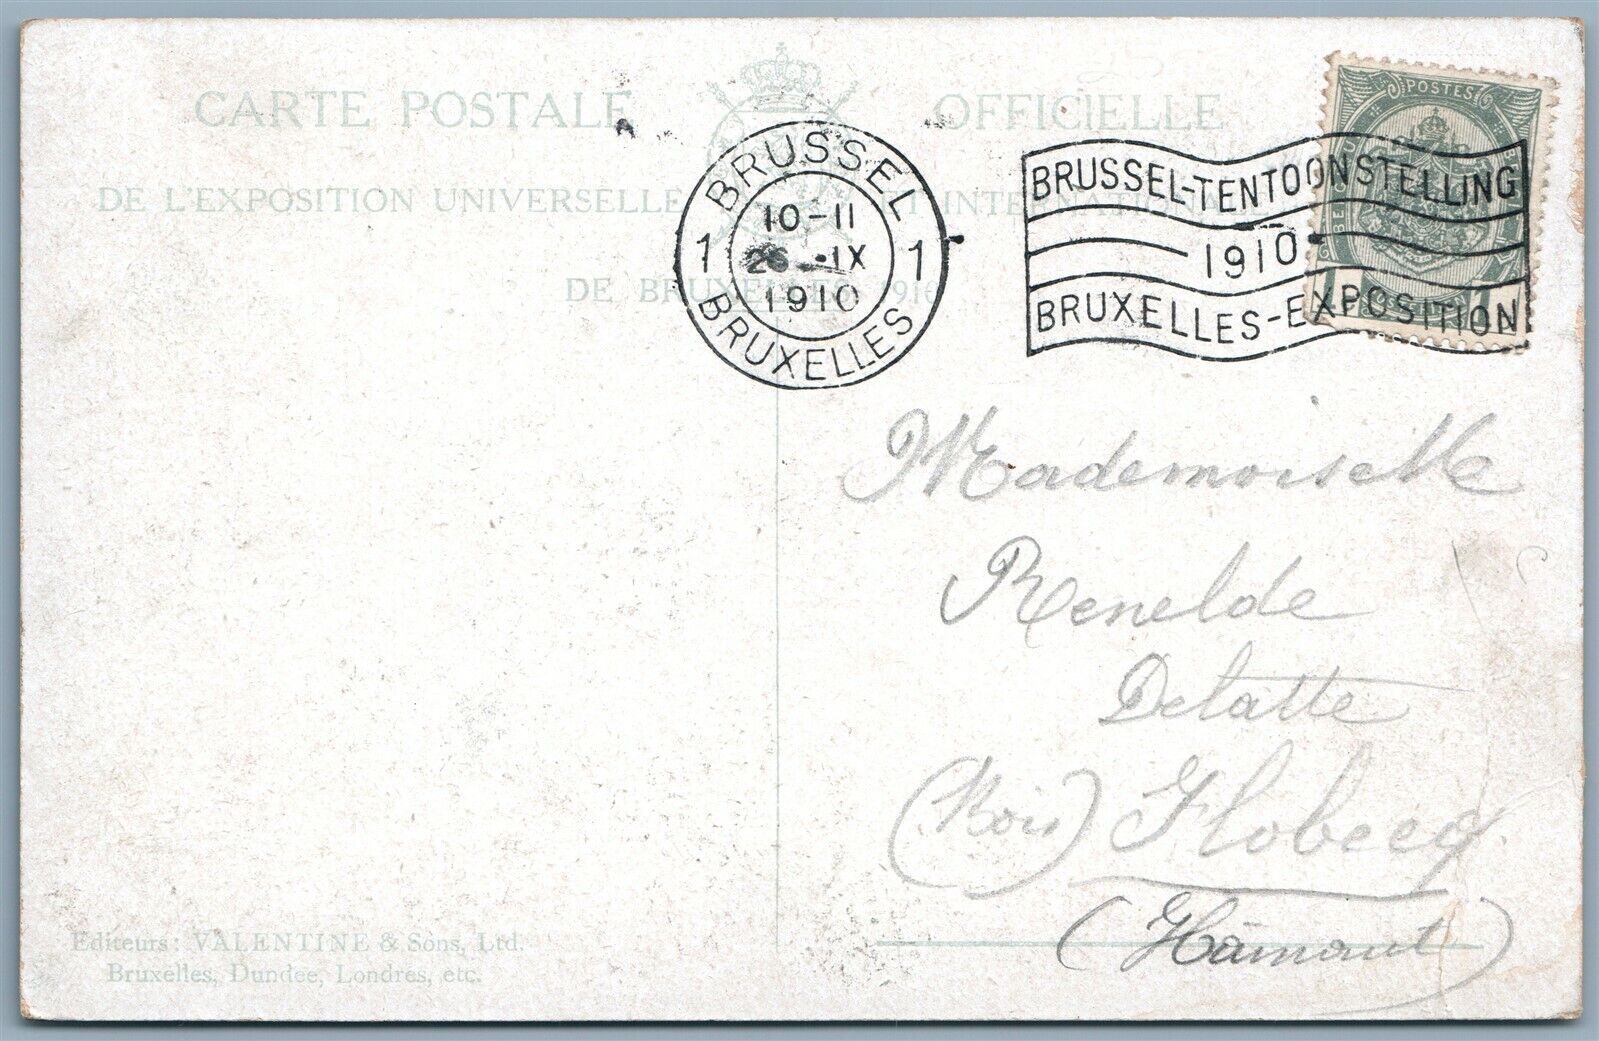 CARTE POSTALE OFFICIELLE
DE L'EXPOSITION UNIVERSELLE ET INTERNATIONALE
DE BRUXELLES 1910
BRUSSEL
10-11
26 IX
1910
1 1
BRUXELLES
BRUSSEL-TENTOONSTELLING
1910
BRUXELLES-EXPOSITION
POSTES
Mademoiselle
Renelde
Delatte
(Bois) Flobecq.
(Hâinaut)
Editeurs: VALENTINE & Sons, Ltd.
Bruxelles, Dundee, Londres, etc.